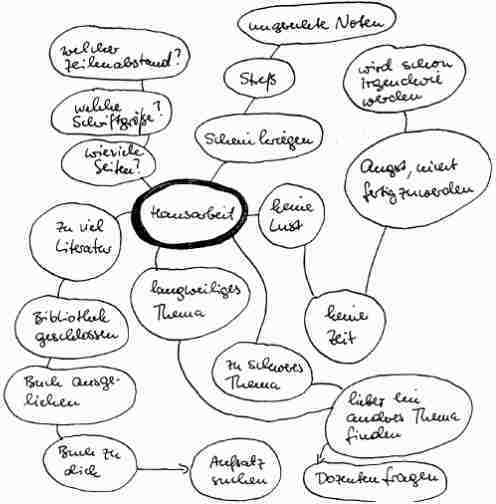 ungerechte Noten
welcher
Zeilenabstand?
Streß
wird schon
irgendwie
werden
welche
Schriftgröße?
Schein kriegen
wieviele
Seiten?
Angst, nicht
fertigzuwerden
Hausarbeit
keine
Lust
zu viel
Literatur
langweiliges
Thema
keine
Zeit
Bibliothek
geschlossen
zu schweres
Thema
Buch ausge-
liehen
lieber ein
anderes Thema
finden
Buch zu
dick
Aufsatz
suchen
Dozenten fragen